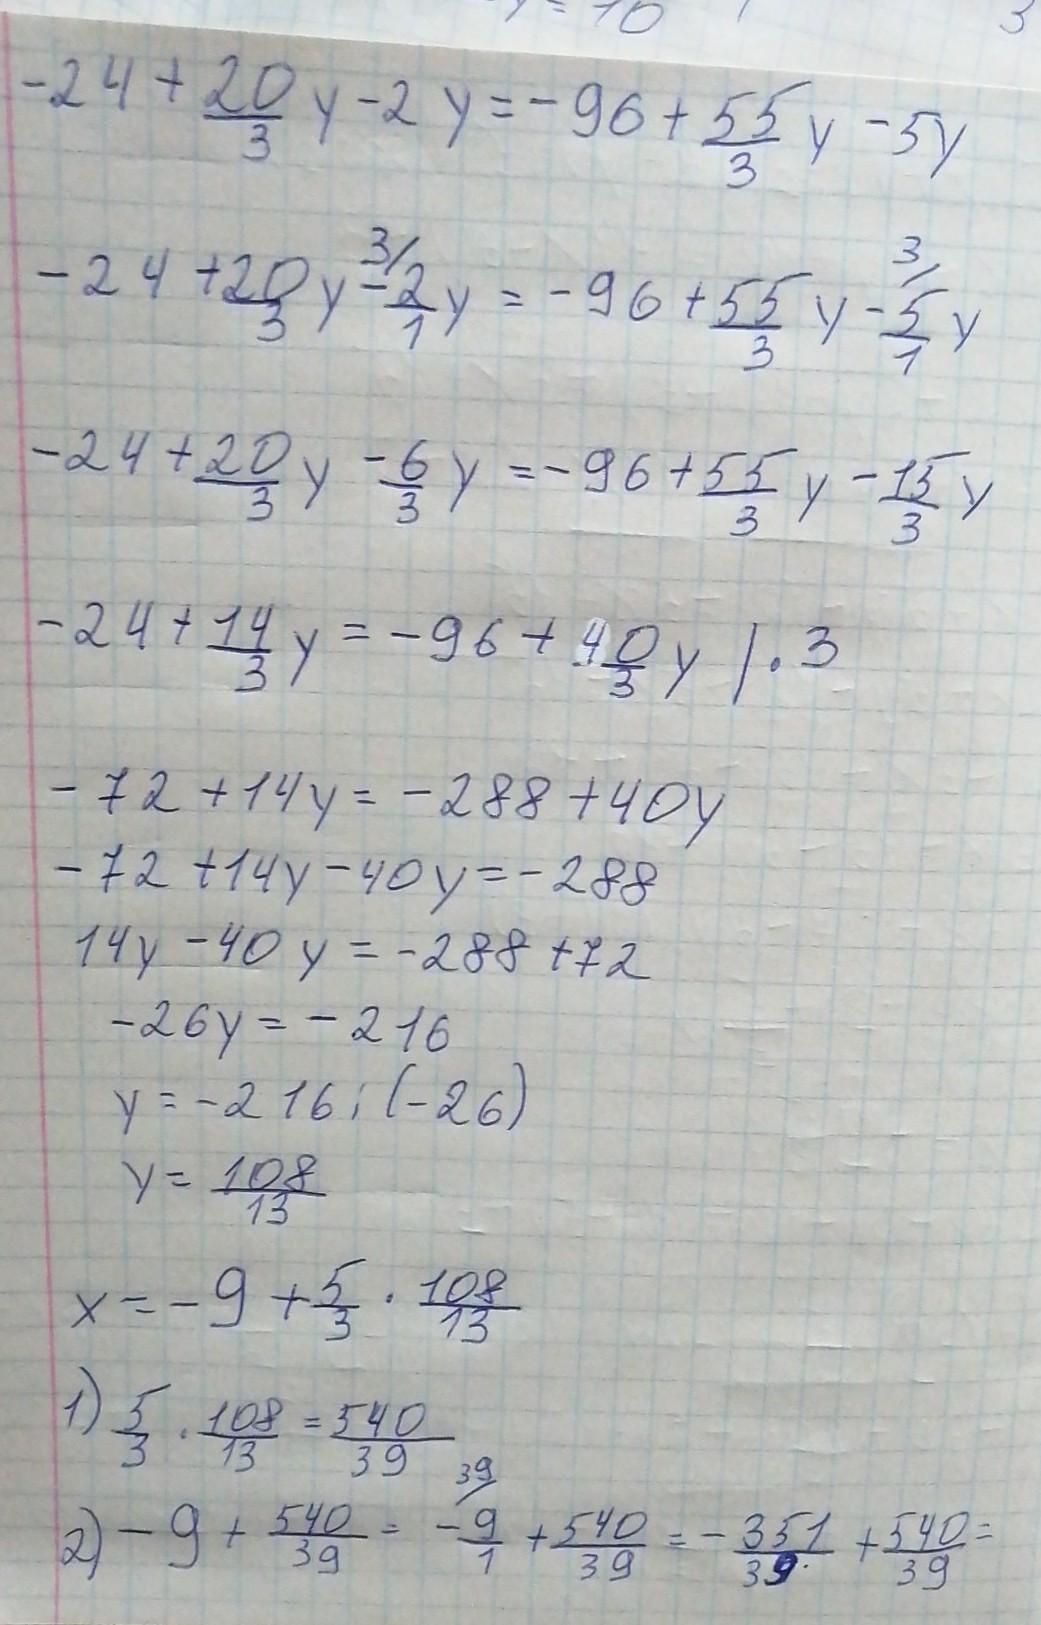 y = 10 3
-24 + 20/3 y - 2y = -96 + 55/3 y - 5y
-24 + 20/3 y 3/ -2/1 y = -96 + 55/3 y 3/ -5/1 y
-24 + 20/3 y -6/3 y = -96 + 55/3 y - 15/3 y
-24 + 14/3 y = -96 + 40/3 y | · 3
-72 + 14y = -288 + 40y
-72 + 14y - 40y = -288
14y - 40y = -288 + 72
-26y = -216
y = -216 : (-26)
y = 108/13
x = -9 + 5/3 · 108/13
1) 5/3 · 108/13 = 540/39
2) -9 + 540/39 = 39/ -9/1 + 540/39 = -351/39 + 540/39 =